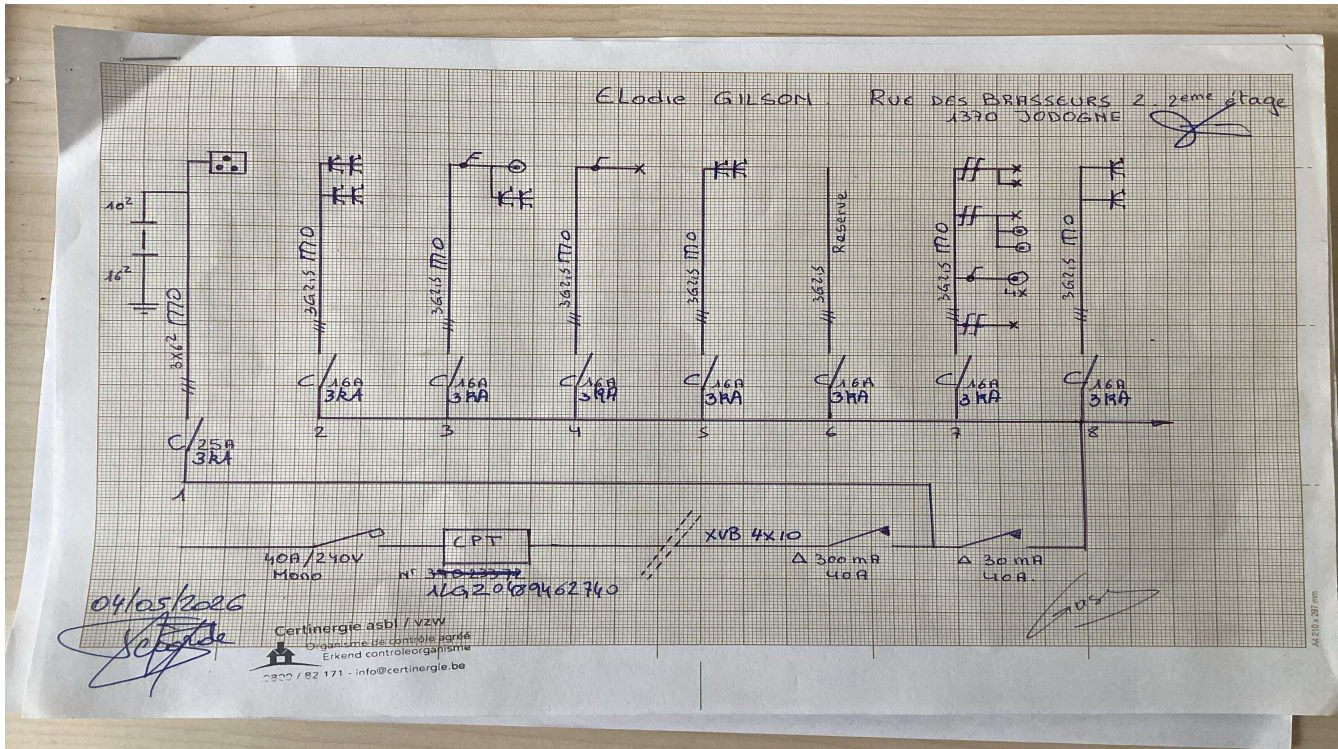 Elodie GILSON. RUE DES BRASSEURS 2 2eme étage
1370 JODOGNE
10²
16²
3x6² MO
3G2,5 MO
3G2,5 MO
3G2,5 MO
3G2,5 MO
3G2,5
Reserve
3G2,5 MO
3G2,5 MO
C 16A
3kA
C 16A
3kA
C 16A
3kA
C 16A
3kA
C 16A
3kA
C 16A
3kA
C 16A
3kA
2 3 4 5 6 7 8
C 25A
3kA
1
40A/240V
Mono
CPT
XVB 4x10
Δ 300 mA
40A
Δ 30 mA
40A.
N°
1LG20489462740
04/05/2026
Certinergie asbl / vzw
Organisme de contrôle agréé
Erkend controleorganisme
0800 / 82 171 - info@certinergie.be
A4 210 x 297 mm